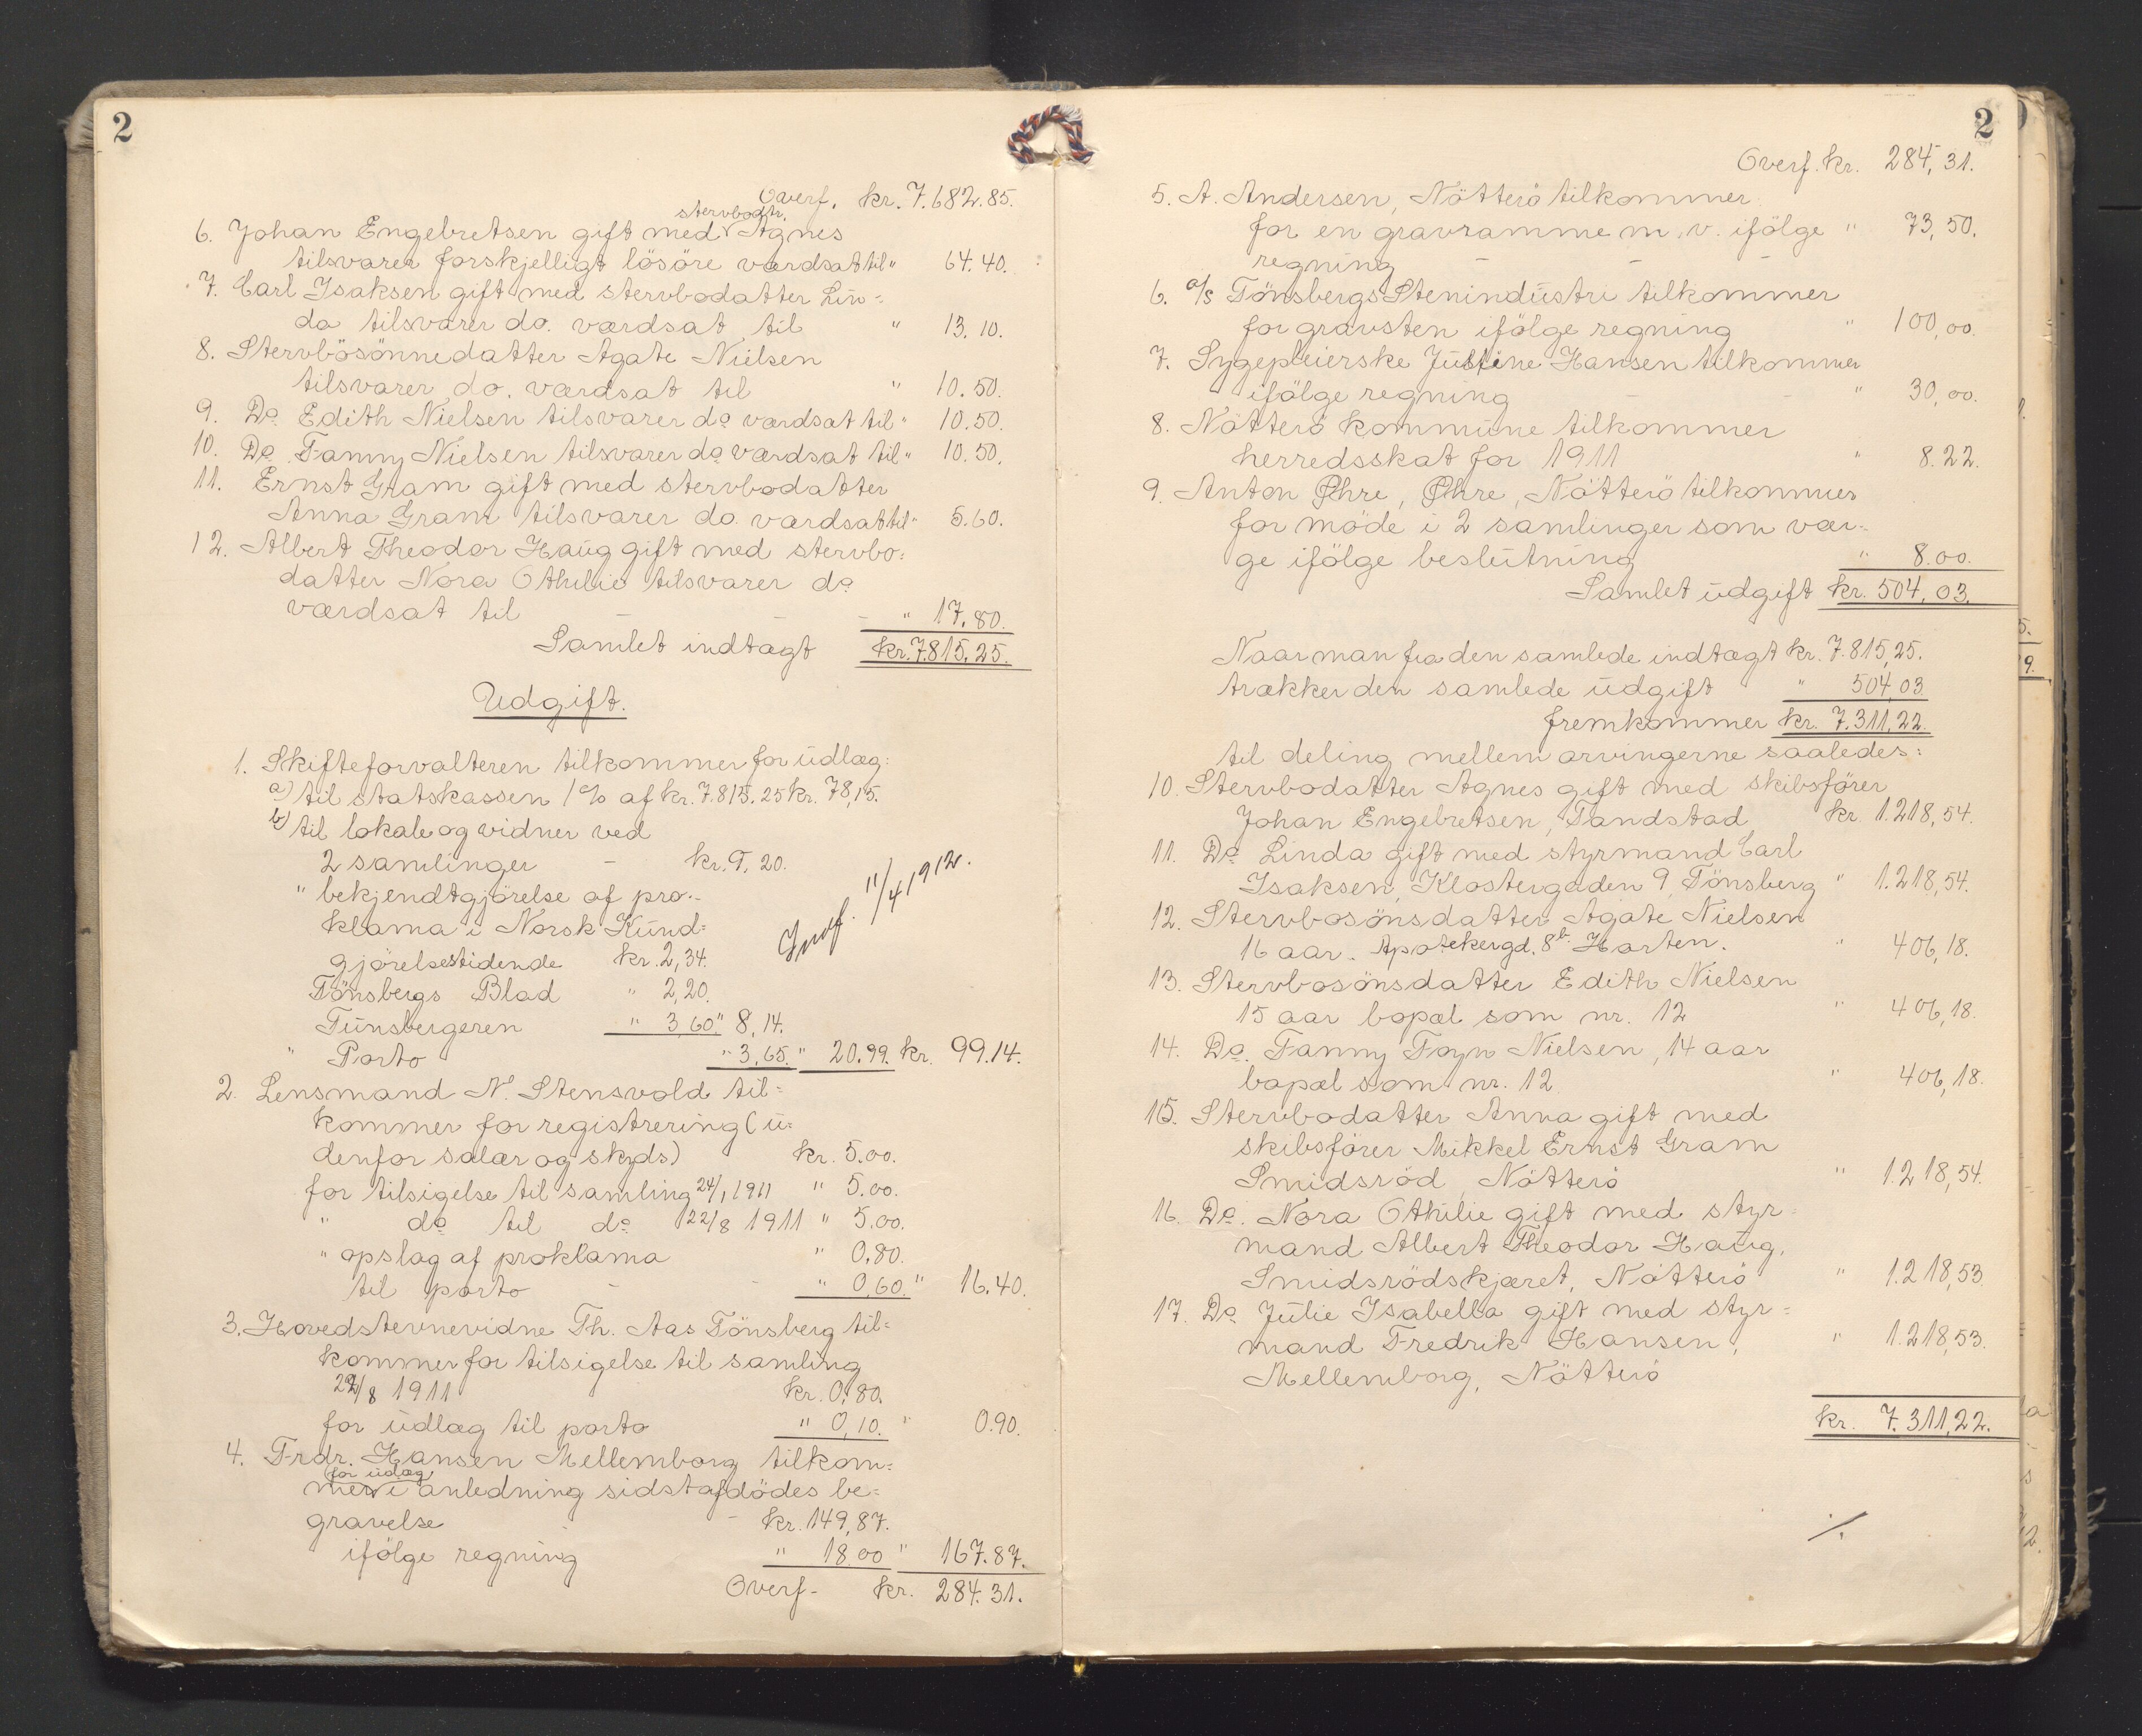 2
Overf. kr. 7.682.85.
stervbodtr.
6. Johan Engebretsen gift med Agnes
tilsvarer forskjelligt lösöre værdsat til " 64.40.
7. Carl Isaksen gift med stervbodatter Lin=
da tilsvarer do. værdsat til " 13.10.
8. Stervbösönnedatter Agate Nielsen
tilsvarer do. værdsat til " 10.50.
9. Do Edith Nielsen tilsvarer do værdsat til " 10.50.
10. Do Fanny Nielsen tilsvarer do værdsat til " 10.50.
11. Ernst Gram gift med stervbodatter
Anna Gram tilsvarer do. værdsat til " 5.60.
12. Albert Theodor Haug gift med stervbo=
datter Nora Othilie tilsvarer do
værdsat til - - " 17.80.
Samlet indtægt kr. 7.815.25.
Udgift.
1. Skifteforvalteren tilkommer for udlæg:
a) til statskassen 1% af kr. 7.815.25 kr. 78,15.
b) til lokale og vidner ved
2 samlinger - kr. 9,20.
" bekjendtgjörelse af pro=
klama i Norsk Kund=
gjörelsestidende kr. 2,34.
Tönsbergs Blad " 2,20.
Tunsbergeren " 3,60. " 8,14.
" Porto " 3,65. " 20.99. kr. 99.14.
11/4 1912.
2. Lensmand N. Stensvold til=
kommer for registrering (u=
denfor salær og skyds) kr. 5.00.
for tilsigelse til samling 24/1 1911 " 5.00.
" do til do 22/8 1911 " 5.00.
" opslag af proklama " 0.80.
til porto - - " 0,60. " 16.40.
3. Hovedstevnevidne Th. Aas Tönsberg til=
kommer for tilsigelse til samling
22/8 1911 kr. 0,80.
for udlæg til porto " 0,10. " 0.90.
4. Frdr. Hansen Mellemborg tilkom=
for udlæg
mer i anledning sidstafdödes be=
gravelse - kr. 149,87.
ifölge regning " 18.00 " 167.87.
Overf- kr. 284.31.
2
Overf. kr. 284,31.
5. A. Andersen, Nötterö tilkommer
for en gravramme m. v. ifölge " 73,50.
regning - - -
6. a/s Tönsbergs Stenindustri tilkommer
for gravsten ifölge regning " 100,00.
7. Sygepleierske Justine Hansen tilkommer
ifölge regning - - " 30,00.
8. Nötterö kommune tilkommer
herredsskat for 1911 " 8.22.
9. Anton Øhre, Øhre, Nötterö tilkommer
for möde i 2 samlinger som vær=
ge ifölge beslutning " 8.00.
Samlet udgift kr. 504,03.
Naar man fra den samlede indtægt kr. 7.815,25.
trækker den samlede udgift " 504,03
fremkommer kr. 7.311,22.
til deling mellem arvingerne saaledes:
10. Stervbodatter Agnes gift med skibsförer
Johan Engebretsen, Tandstad kr. 1.218,54.
11. Do Linda gift med styrmand Carl
Isaksen, Klostergaden 9, Tönsberg " 1.218,54.
12. Stervbosönsdatter Agate Nielsen
16 aar. Apotekergd. 8b Horten. " 406,18.
13. Stervbosönsdatter Edith Nielsen
15 aar bopæl som nr. 12 " 406,18.
14. Do. Fanny Foyn Nielsen, 14 aar
bopæl som nr. 12 " 406,18.
15. Stervbodatter Anna gift med
skibsförer Mikkel Ernst Gram
Smidsröd, Nötterö " 1.218,54.
16. Do. Nora Othilie gift med styr=
mand Albert Theodor Haug,
Smidsrödskjæret, Nötterö " 1.218,53.
17. Do Julie Isabella gift med styr=
mand Fredrik Hansen, " 1.218,53.
Mellemborg, Nötterö
kr. 7.311,22.
./.